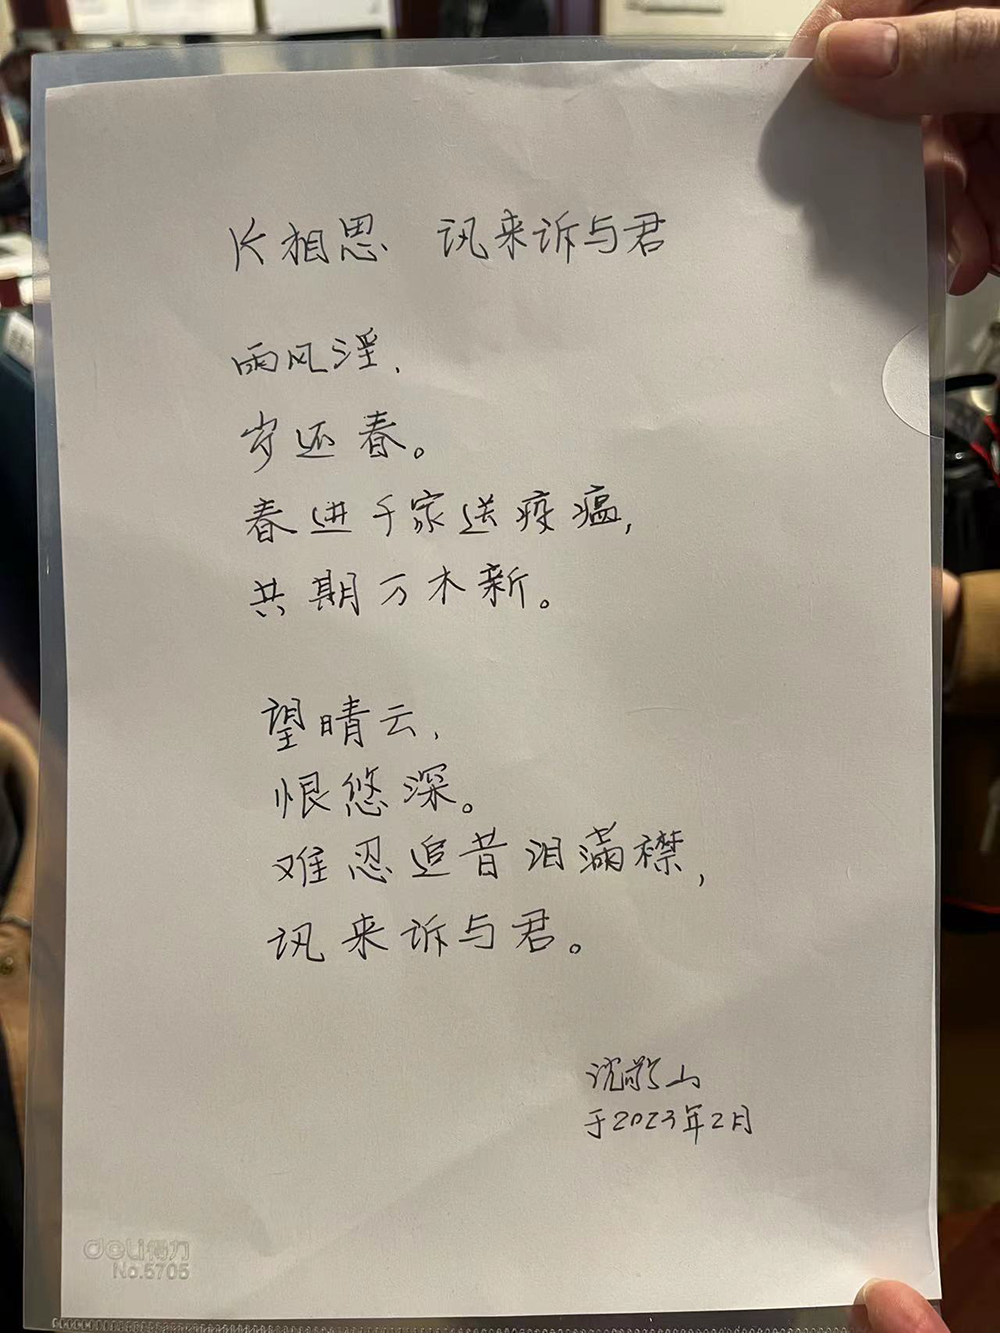 长相思 讯来诉与君
雨风淫,
岁还春。
春进千家送疫瘟,
共期万木新。
望晴云,
恨悠深。
难忍追昔泪满襟,
讯来诉与君。
沈敬山
于2023年2月
deli得力
No.5705